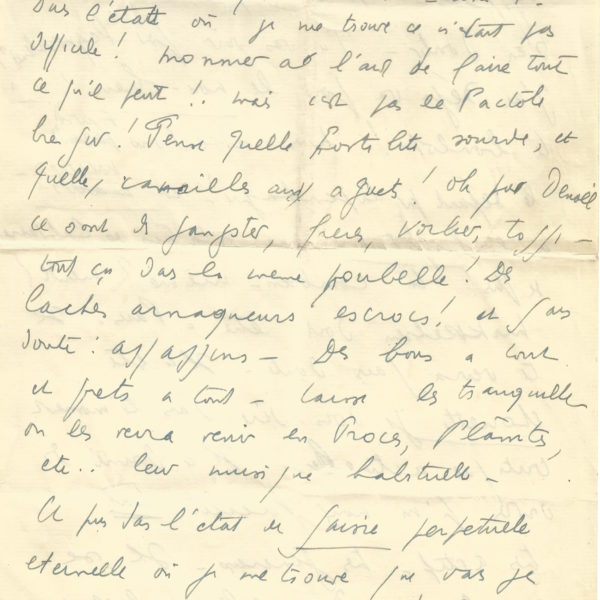 dans l'état où je me trouve ce n'était pas
difficile! Monnier a l'air de faire tout
ce qu'il peut!! mais c'est pas le Pactole
bien sûr! Pense quelle hostilité sourde, et
quelles canailles aux aguets! Oh pour Denoël
ce sont des gangsters, frères,
tout ça dans la même poubelle! Des
laches arnaqueurs escrocs! et sans
doute: assassins - Des bons a tout
et prets a tout - laisse les tranquille
on les reverra venir en Procès, Plaintes,
etc.. leur musique habituelle -
Et puis dans l'état de saisie perpetuelle
eternelle où je me trouve que vas je